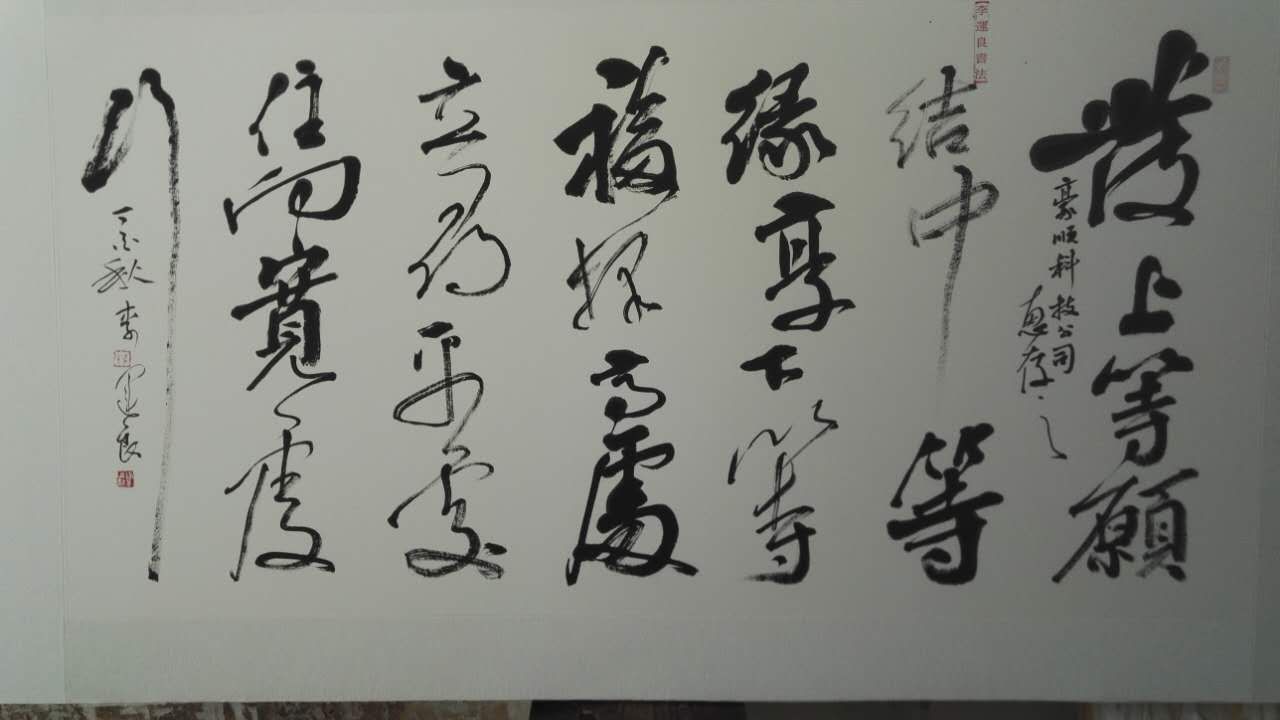 發上等願
豪順科技公司
惠存
【李運良書法】
結中等
緣享下等
福擇高處
立尋平處
住向寬處
行
丁酉秋李運良